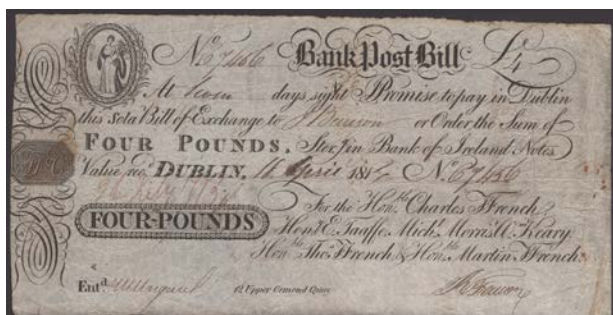 No. 67456 Bank Post Bill £4
At days sight I Promise to pay in Dublin
this Sola Bill of Exchange to or Order the Sum of
FOUR POUNDS, Ster. in Bank of Ireland Notes
Value recd. DUBLIN, 16 April 1814 No. 67456
FOUR-POUNDS
For the Honble. Charles Ffrench,
Honl. E. Taaffe, Michl. Morris A. Keary,
Honble. Thos. Ffrench & Honble. Martin Ffrench.
Entd. 12 Upper Ormond Quay